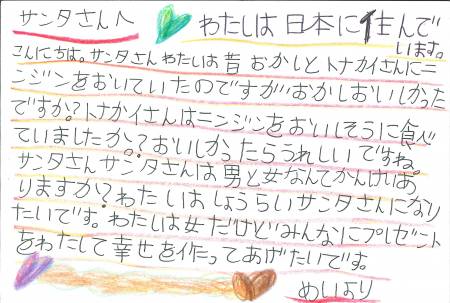 サンタさんへ
わたしは日本に住んで
います。
こんにちは。サンタさんわたしは昔おかしとトナカイさんにニ
ンジンをおいていたのですがおかしおいしかった
ですか?トナカイさんはニンジンをおいしそうに食べ
ていましたか。?おいしかったらうれしいですね。
サンタさんサンタさんは男と女なんてかんけいあ
りますか?わたしはしょうらいサンタさんになり
たいです。わたしは女だけどみんなにプレゼント
をわたして幸せを作ってあげたいです。
めいより